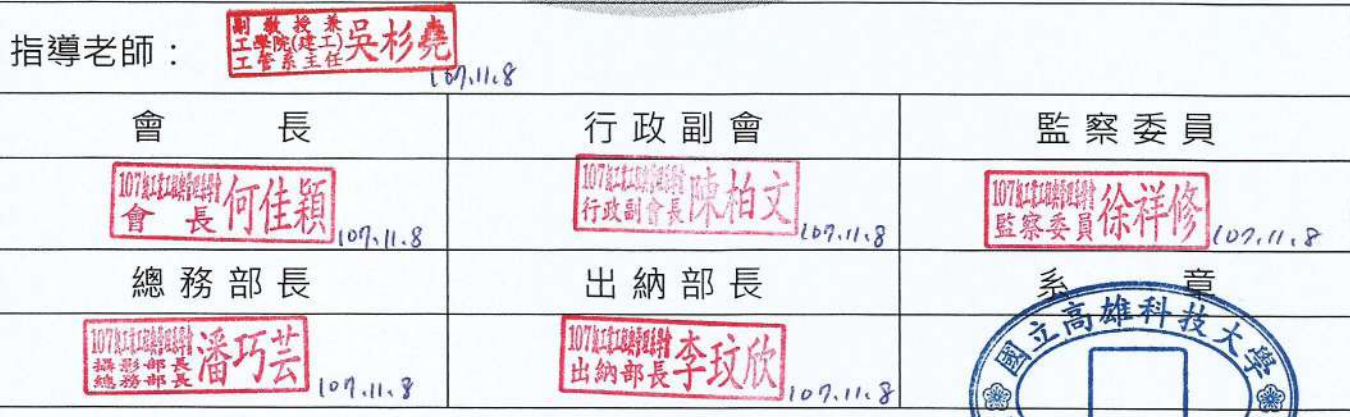 指導老師：
副教授兼
工學院(建工)
工管系主任
吳杉堯
107.11.8
會 長
行政副會
監察委員
107級工業工程與管理系學會
會 長
何佳穎
107.11.8
107級工業工程與管理系學會
行政副會長
陳柏文
107.11.8
107級工業工程與管理系學會
監察委員
徐祥修
107.11.8
總務部長
出納部長
系 章
107級工業工程與管理系學會
攝影部長
總務部長
潘巧芸
107.11.8
107級工業工程與管理系學會
出納部長
李玟欣
107.11.8
國立高雄科技大學